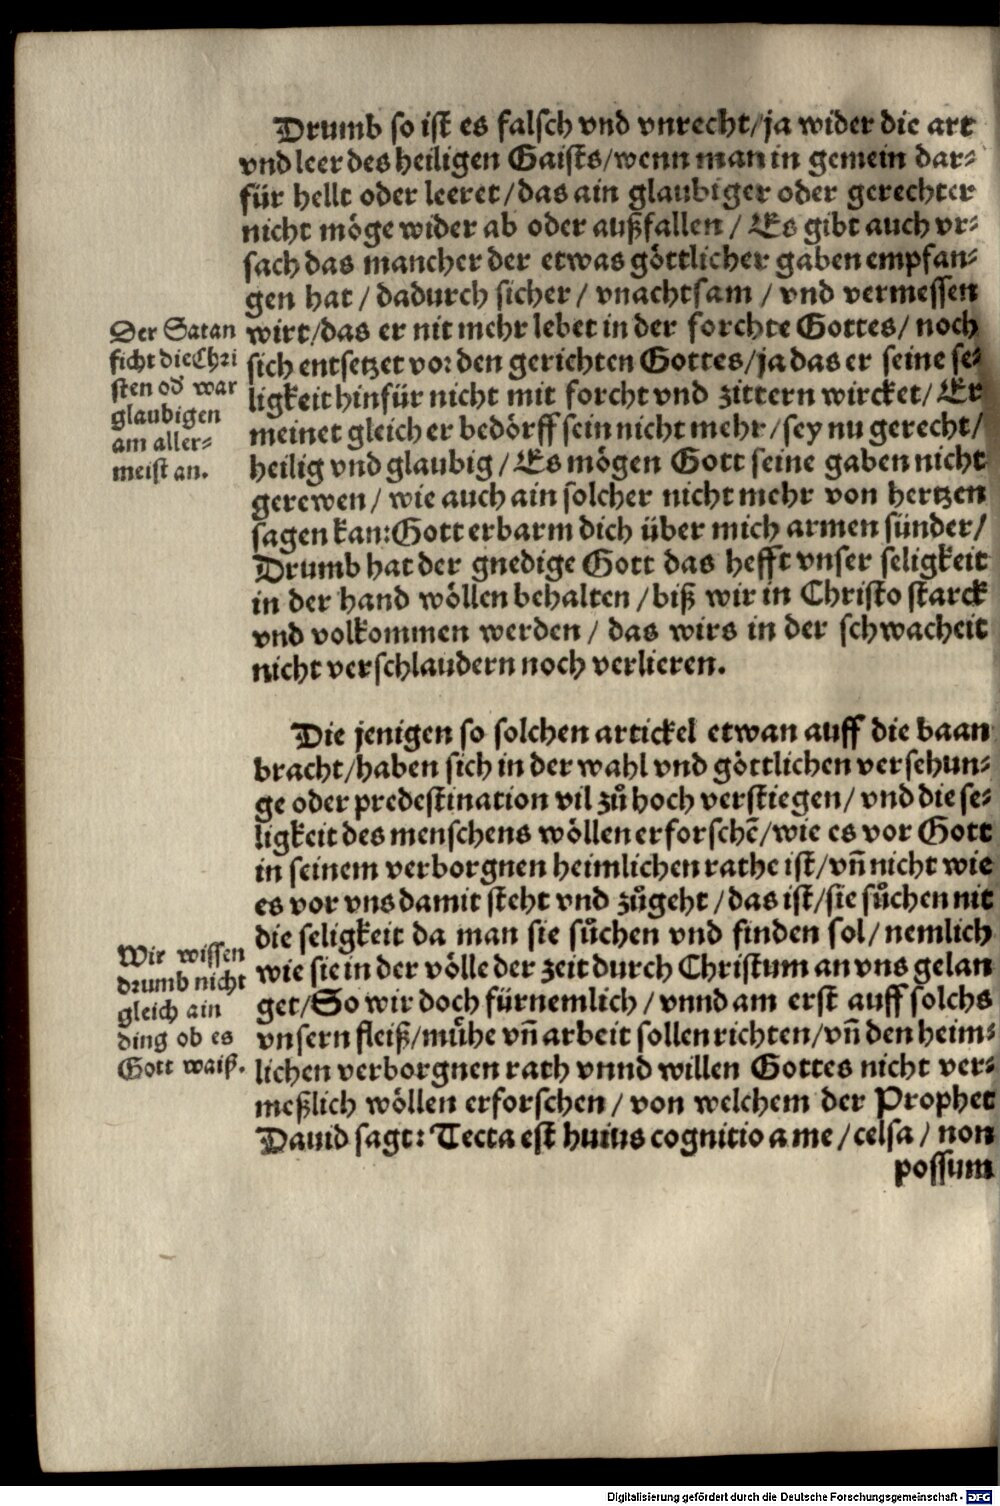 Drumb so ist es falsch vnd vnrecht/ja wider die art
vnd leer des heiligen Gaists/wenn man in gemein dar⸗
für hellt oder leeret/das ain glaubiger oder gerechter
nicht möge wider ab oder außfallen / Es gibt auch vr⸗
sach das mancher der etwas göttlicher gaben empfan⸗
gen hat / dadurch sicher / vnachtsam / vnd vermessen
wirt/das er nit mehr lebet in der forchte Gottes/ noch
sich entsetzet vor den gerichten Gottes/ja das er seine se⸗
ligkeit hinfür nicht mit forcht vnd zittern wircket/ Er
meinet gleich er bedörff sein nicht mehr/sey nu gerecht/
heilig vnd glaubig/ Es mögen Gott seine gaben nicht
gerewen/ wie auch ain solcher nicht mehr von hertzen
sagen kan:Gott erbarm dich über mich armen sünder/
Drumb hat der gnedige Gott das hefft vnser seligkeit
in der hand wöllen behalten/biß wir in Christo starck
vnd volkommen werden/ das wirs in der schwacheit
nicht verschlaudern noch verlieren.
Der Satan
ficht die Chri
sten od war
glaubigen
am aller⸗
meist an.
Die jenigen so solchen artickel etwan auff die baan
bracht/haben sich in der wahl vnd göttlichen versehun⸗
ge oder predestination vil zů hoch verstiegen/ vnd die se⸗
ligkeit des menschens wöllen erforschē/wie es vor Gott
in seinem verborgnen heimlichen rathe ist/vñ nicht wie
es vor vns damit steht vnd zůgeht/das ist/sie sůchen nit
die seligkeit da man sie sůchen vnd finden sol/ nemlich
wie sie in der völle der zeit durch Christum an vns gelan
get/So wir doch fürnemlich/vnnd am erst auff solchs
vnsern fleiß/můhe vñ arbeit sollen richten/vñ den heim⸗
lichen verborgnen rath vnnd willen Gottes nicht ver⸗
meßlich wöllen erforschen/ von welchem der Prophet
Dauid sagt: Tecta est huius cognitio a me/celsa/ non
possum
Wir wissen
drumb nicht
gleich ain
ding ob es
Gott waiß.
Digitalisierung gefördert durch die Deutsche Forschungsgemeinschaft - DFG